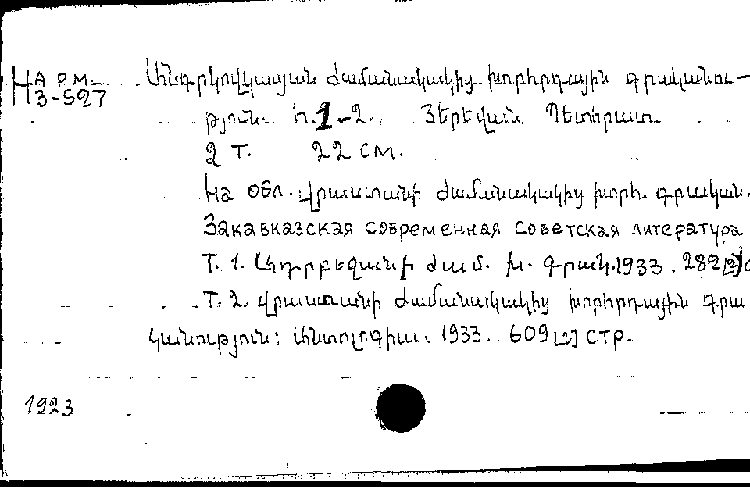 На рм. Անդրկովկասյան ժամանակակից խորհրդային գրականու—
3-527 թյուն. Հ.1-2. Յերեվան Պետհրատ.
2 т. 22 см.
На обл. Վրաստանի ժամանակակից խորհ. գրական.
Закавказская современная советская литература
Т. 1. Ադրբեջանի ժամ. խ. գրակ. 1933. 282[2]с
Т. 2. Վրաստանի ժամանակակից խորհրդային գրա
կանություն: Անտոլոգիա. 1933. 609[2] стр.
1923